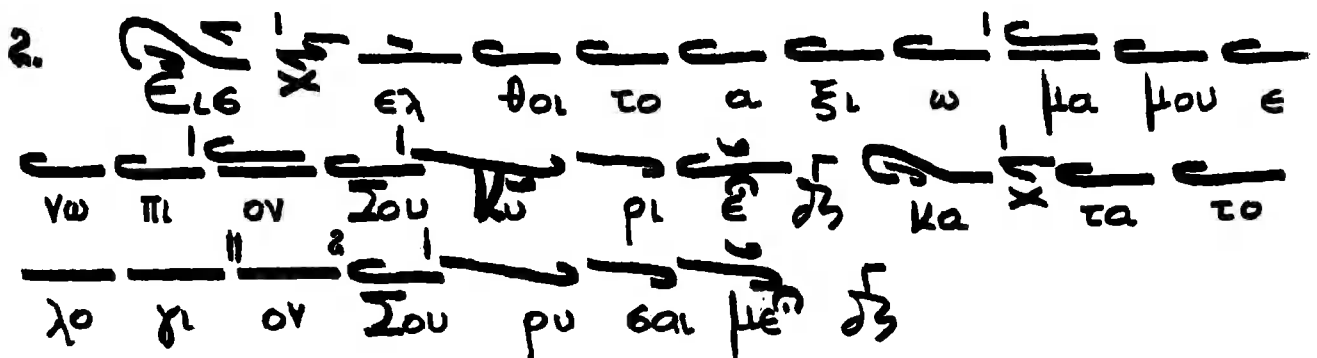 2. Εισ ελ θοι το α ξι ω μα μου ε
νω πι ον Σου Κυ ρι ε κα τα το
λο γι ον Σου ρυ σαι με